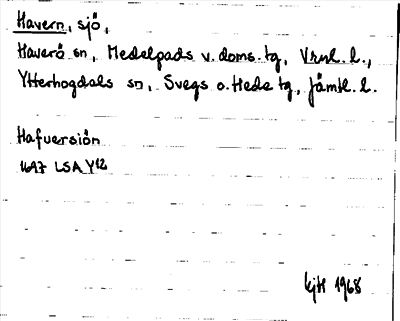 Havern, sjö,
Haverö sn, Medelpads v. doms. tg, Vrnl. l.,
Ytterhogdals sn, Svegs o. Hede tg, Jämtl. l.
Hafversiön
1647 LSA Y12
kjH 1968